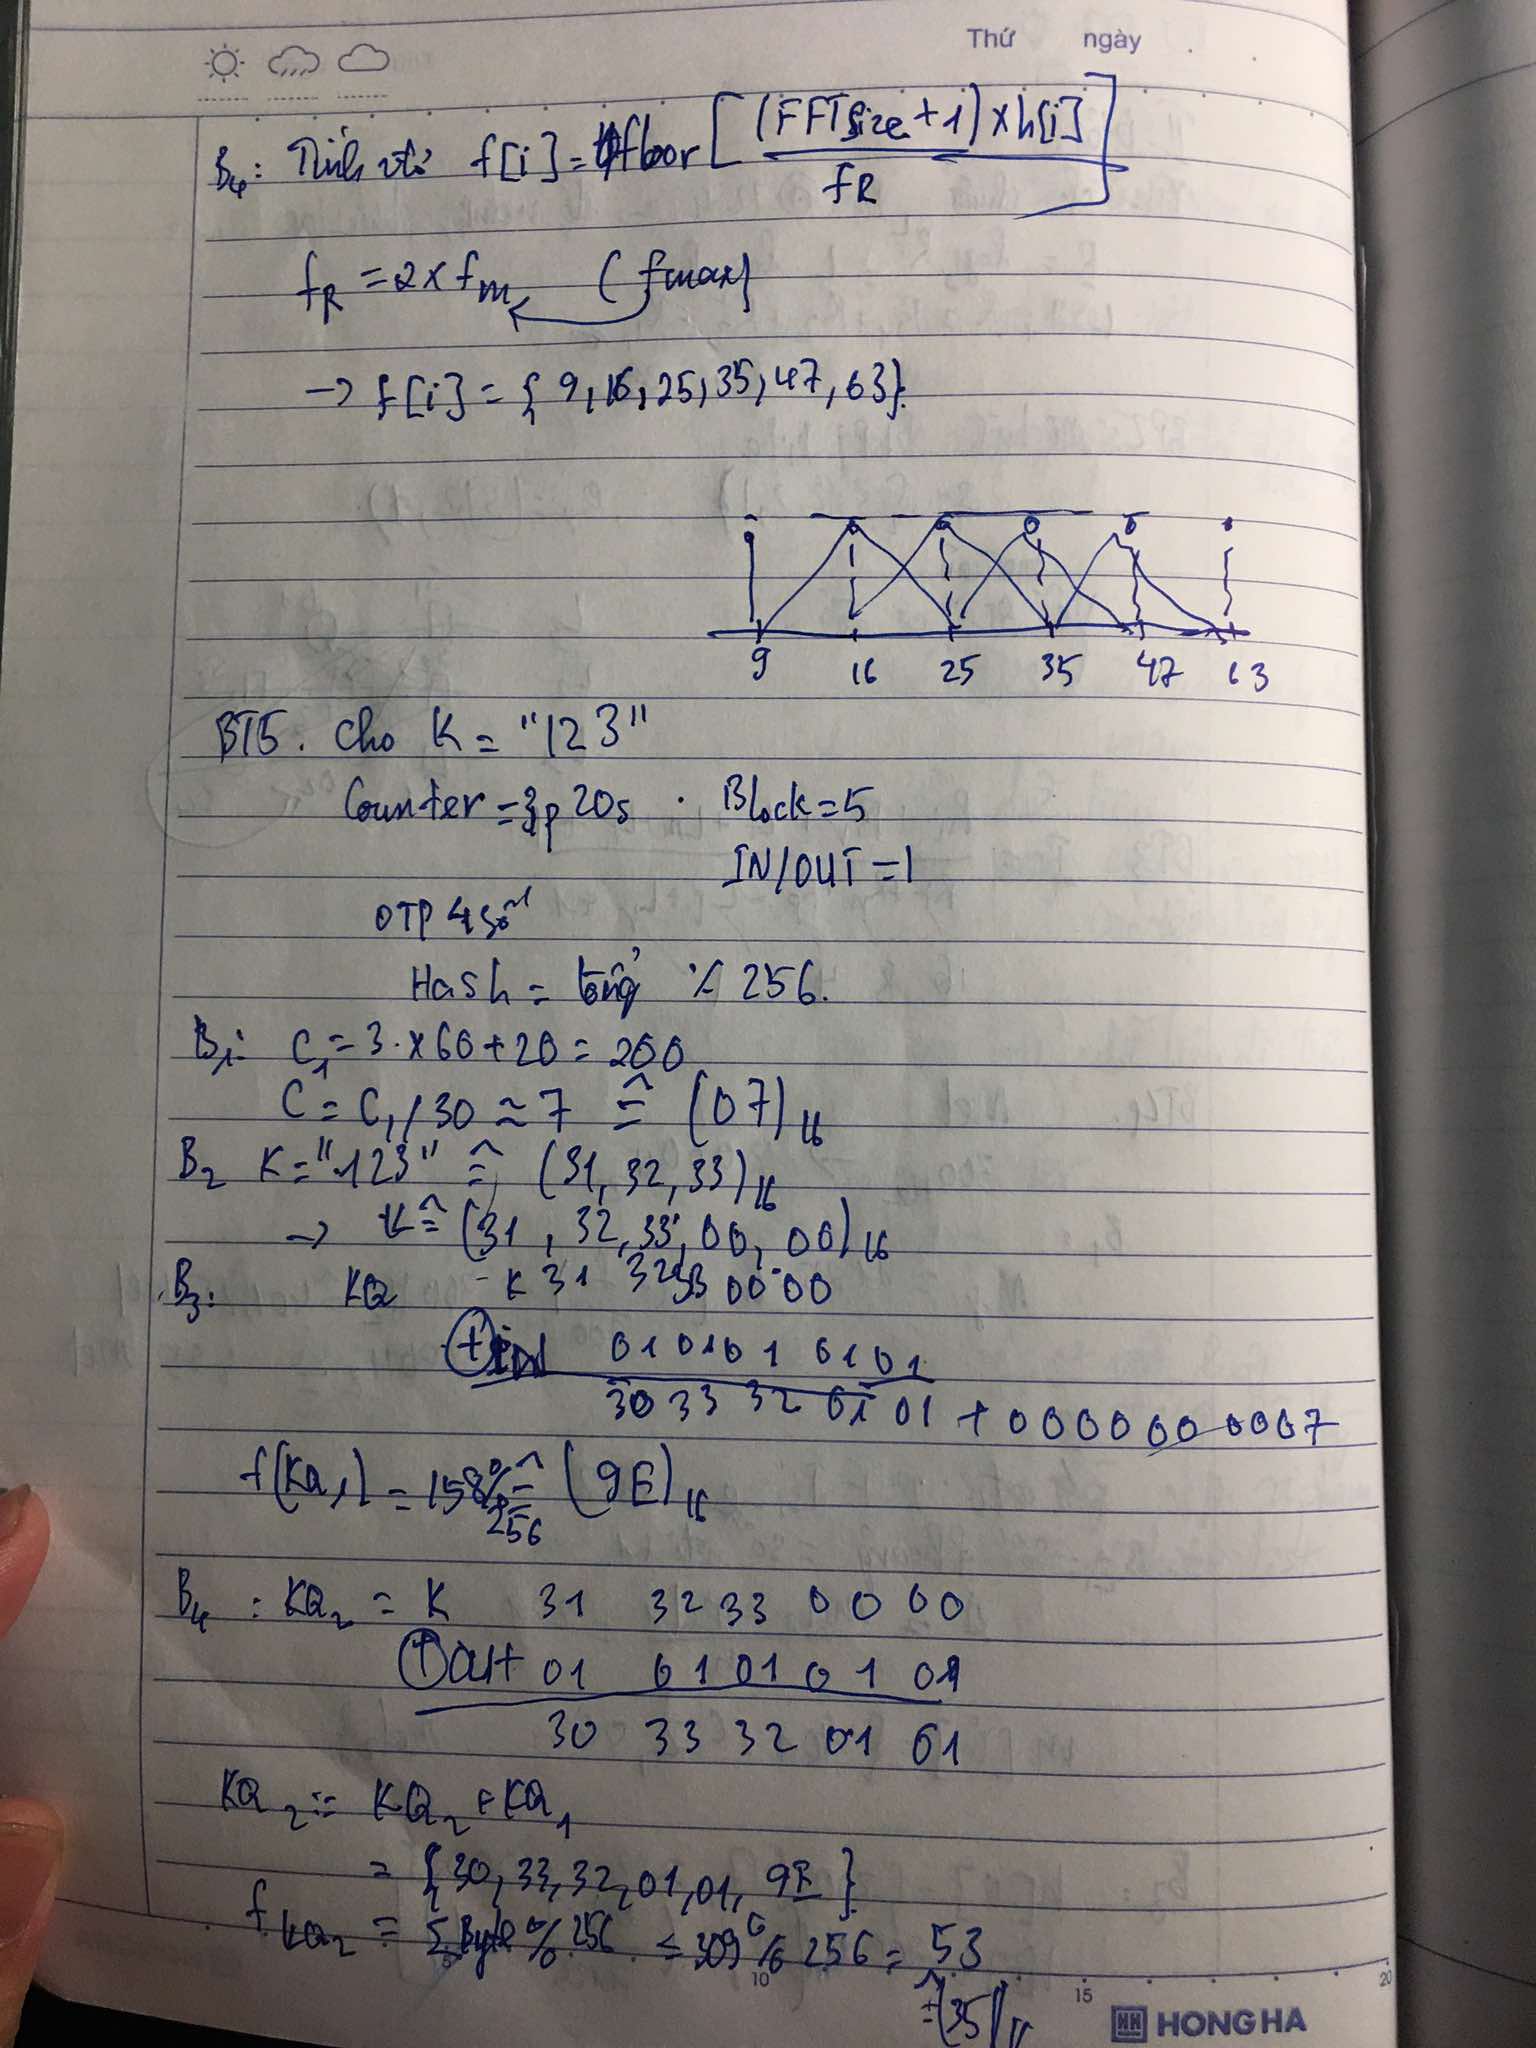 Thứ ngày
B4: Tính vtr f[i] = floor [ (FFTsize + 1) x h[i] / fR ]
fR = 2 x fm (fmax)
-> f[i] = { 9, 16, 25, 35, 47, 63 }.
9 16 25 35 47 63
BT5. Cho K = "123"
Counter = 3p 20s . Block = 5
IN/OUT = 1
OTP 4 số
Hash = tổng % 256.
B1: C1 = 3 x 60 + 20 = 200
C = C1/30 ≈ 7 ≙ (07)16
B2 K = "123" ≙ (31, 32, 33)16
-> K ≙ (31, 32, 33, 00, 00)16
B3: KQ = K 31 32 33 00 00
⊕ IN 01 01 01 01 01
30 33 32 01 01 + 00 00 00 00 07
f(KQ1) = 158 % 256 ≙ (9E)16
B4: KQ2 = K 31 32 33 00 00
⊕ Out 01 01 01 01 01
30 33 32 01 01
KQ2 = KQ2 + KQ1
= { 30, 33, 32, 01, 01, 9E }
f KQ2 = Σ Byte % 256 = 309 % 256 = 53
≙ (35)16
5 10 15 20
HH HONG HA